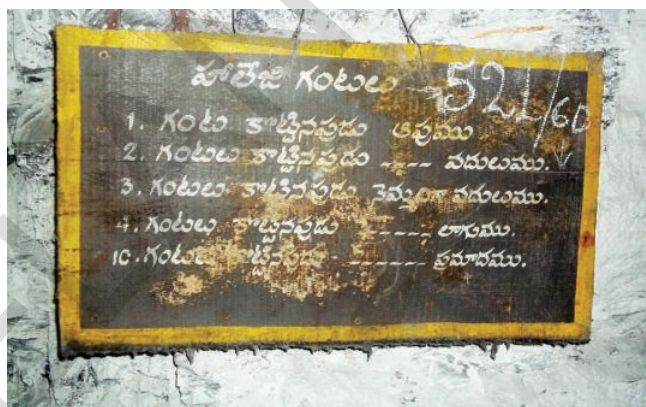 హాలేజి గంటలు 521/60
1. గంట కొట్టినపుడు ఆపుము
2. గంటలు కొట్టినపుడు ---- వదులుము.
3. గంటలు కొట్టినపుడు నెమ్మదిగా వదులుము.
4. గంటలు కొట్టినపుడు ------ లాగుము.
10. గంటలు కొట్టినపుడు ------- ప్రమాదము.